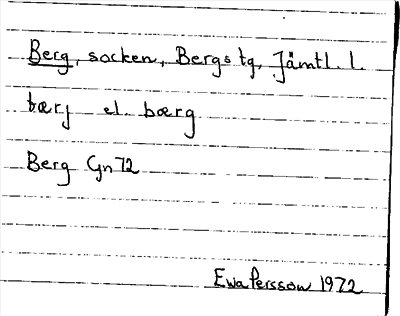 Berg, socken, Bergs tg, Jämtl. l.
bærj el. bærg
Berg Gn 72
Ewa Persson 1972